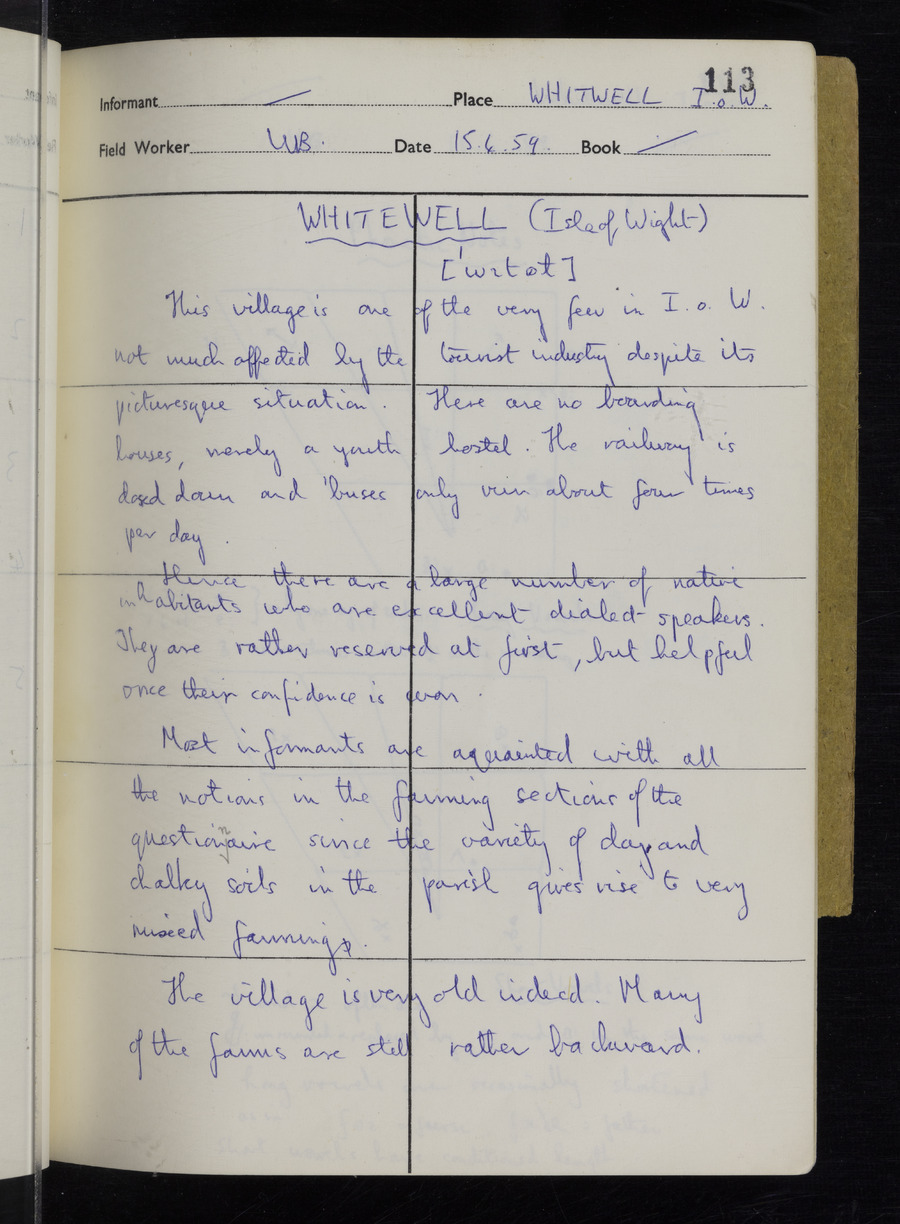 113
Informant / Place WHITWELL I.o.W.
Field Worker WB. Date 15.6.59. Book /
WHITEWELL (Isle of Wight)
This village is one of the very few in I.o.W.
not much affected by the tourist industry despite its
picturesque situation. Here are no boarding
houses, merely a youth hostel. The railway is
closed down and 'buses only run about four times
per day.
Hence there are a large number of native
inhabitants who are excellent dialect speakers.
They are rather reserved at first, but helpful
once their confidence is won.
Most informants are aquainted with all
the notions in the farming sections of the
questionnaire since the variety of clay and
chalky soils in the parish gives rise to very
mixed farming.
The village is very old indeed. Many
of the farms are still rather backward.